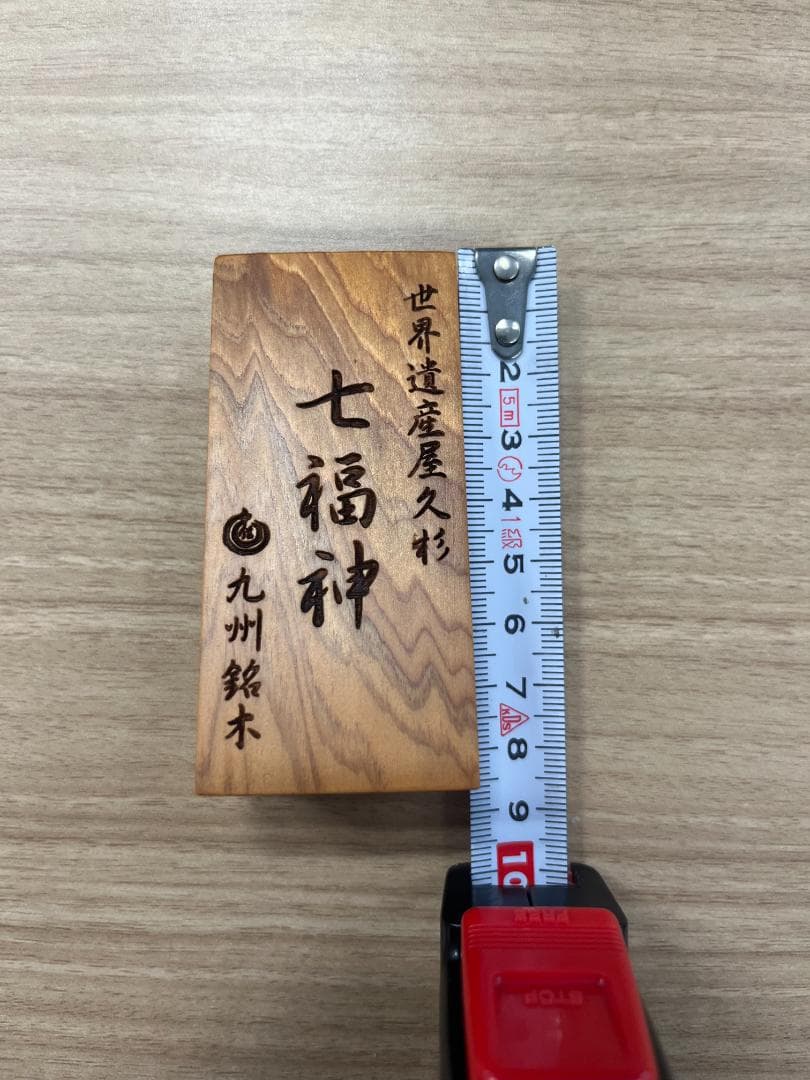 世界遺産屋久杉
七福神
九州銘木
2
5m
3
4
1級
5
6
7
KDS
8
9
10
STOP